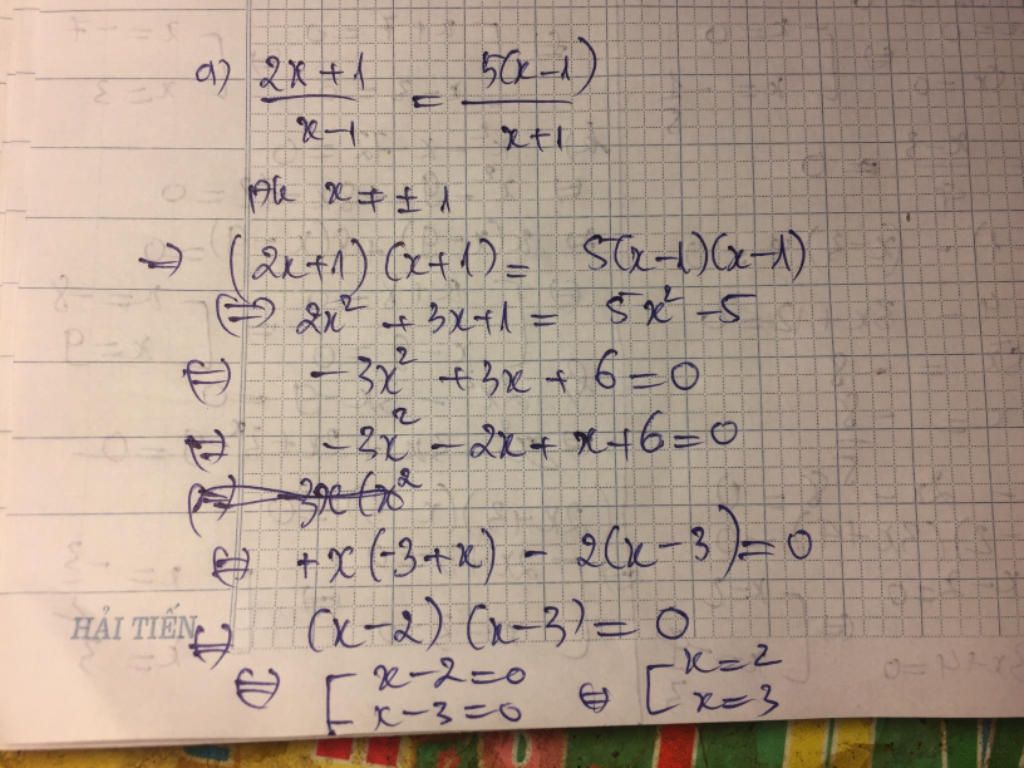 a) (2x+1)/(x-1) = 5(x-1)/(x+1)
ĐK x ≠ ± 1
=> (2x+1)(x+1) = 5(x-1)(x-1)
(=) 2x² + 3x+1 = 5x² -5
(=) -3x² +3x + 6 = 0
(=) -3x² - 2x + x + 6 = 0
(=) 3x (x²
(=) +x(-3+x) - 2(x-3) = 0
HẢI TIẾN
(=) (x-2) (x-3) = 0
(=) [ x-2=0 (=) [ x=2
x-3=0 x=3